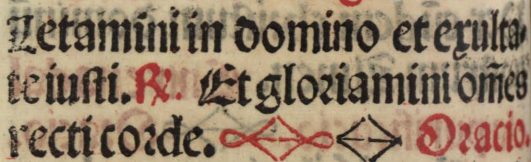 Letamini in domino et exulta-
te iusti. ℟. Et gloriamini om̃es
recti corde. Oracio